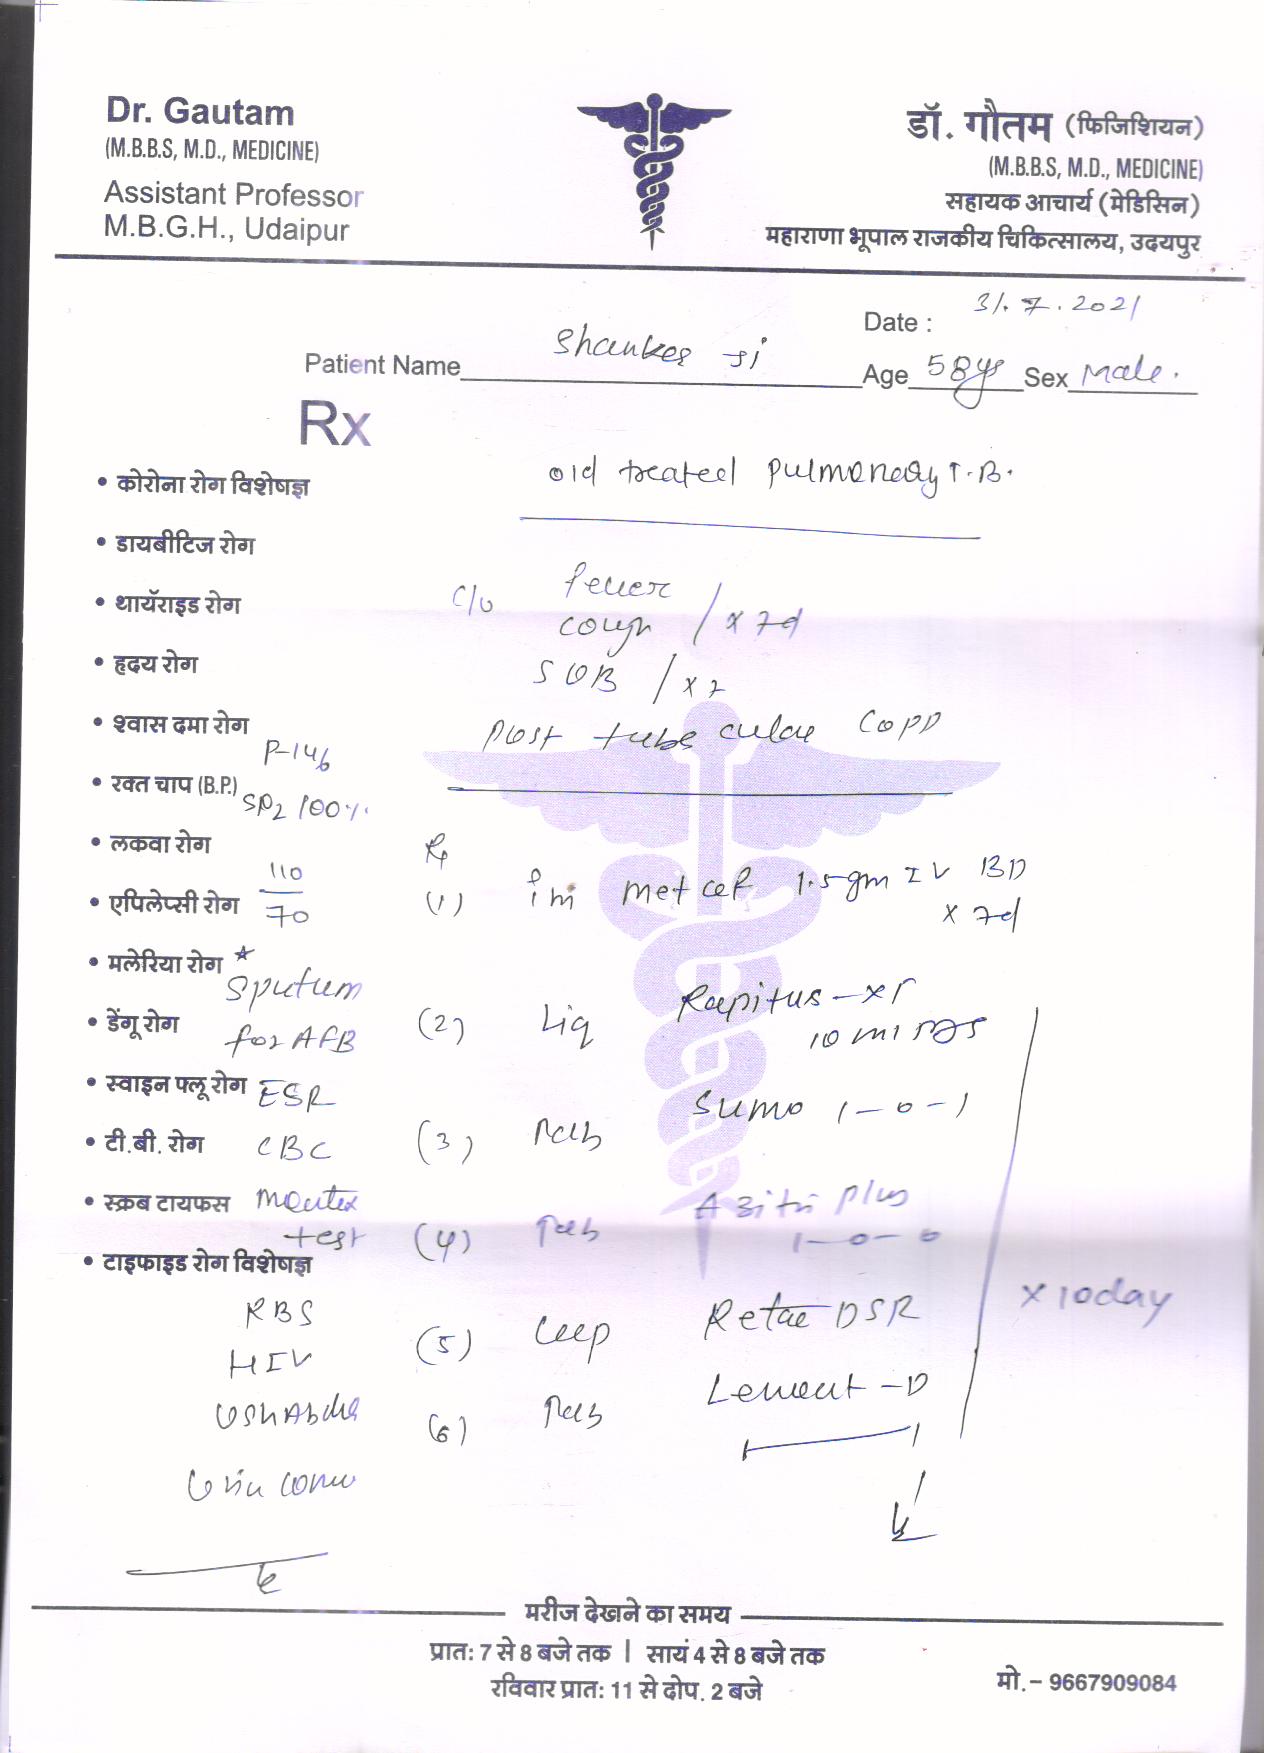 Dr. Gautam
(M.B.B.S, M.D., MEDICINE)
Assistant Professor
M.B.G.H., Udaipur
डॉ. गौतम (फिजिशियन)
(M.B.B.S, M.D., MEDICINE)
सहायक आचार्य (मेडिसिन)
महाराणा भूपाल राजकीय चिकित्सालय, उदयपुर
Date : 31.7.2021
Patient Name Shanker Ji Age 58 ys Sex Male.
Rx
old treated pulmonary T.B.
• कोरोना रोग विशेषज्ञ
• डायबीटिज रोग
• थायॅराइड रोग
• हृदय रोग
• श्वास दमा रोग
• रक्त चाप (B.P.)
• लकवा रोग
• एपिलेप्सी रोग
• मलेरिया रोग
• डेंगू रोग
• स्वाइन फ्लू रोग
• टी.बी. रोग
• स्क्रब टायफस
• टाइफाइड रोग विशेषज्ञ
P-146
SPO2 100%
110
70
* Sputum
for AFB
ESR
CBC
Montex
test
RBS
HIV
c/o fever
cough / x 7d
SOB / x 7
post tubercular COPD
Rx
(1) Inj Metcef 1.5gm IV BD
x 7d
(2) Liq Rapitus-XT
10 ml TDS
(3) Tab Sumo 1-0-1
(4) Tab Azitri Plus
1-0-0
(5) Cap DSR
(6) Tab -D
x 10day
मरीज देखने का समय
प्रात: 7 से 8 बजे तक | सायं 4 से 8 बजे तक
रविवार प्रात: 11 से दोप. 2 बजे
मो.- 9667909084